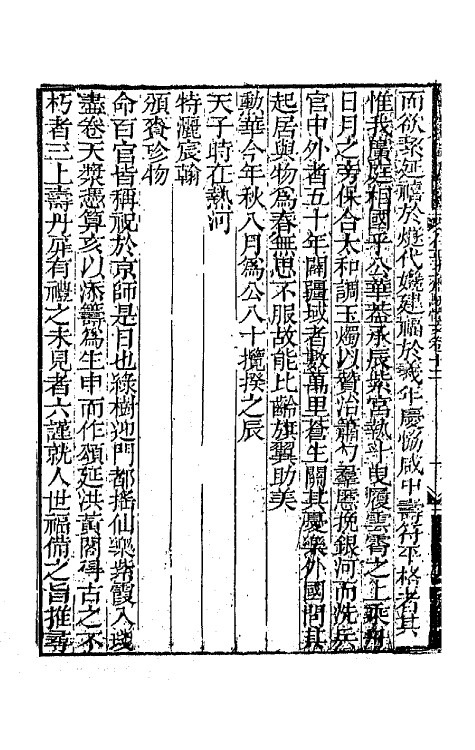 而欲聚延禧於燧代嬀建福於羲年慶暢咸中壽符平格者其
惟我廣庭相國乎公華蓋承辰紫宮執斗曳履雲霄之上乘
日月之旁保合太和調玉燭以贊治蕭勺羣慝挽銀河而洗兵
官中外者五十年闢疆域者數萬里蒼生關其憂樂外國問其
起居與物為春無思不服故能比齡旗翼助美
動華今年秋八月為公八十攬揆之辰
天子時在熱河
特灑宸翰
頒賚珍物
命百官皆稱祝於京師是日也綠樹迎門都搖仙樂紫霞入琖
盡卷天漿憑算亥以添籌為生申而作頌延洪黃閣尋古之不
朽者三上壽丹屏有禮之未見者六謹就人世福備之旨推尋